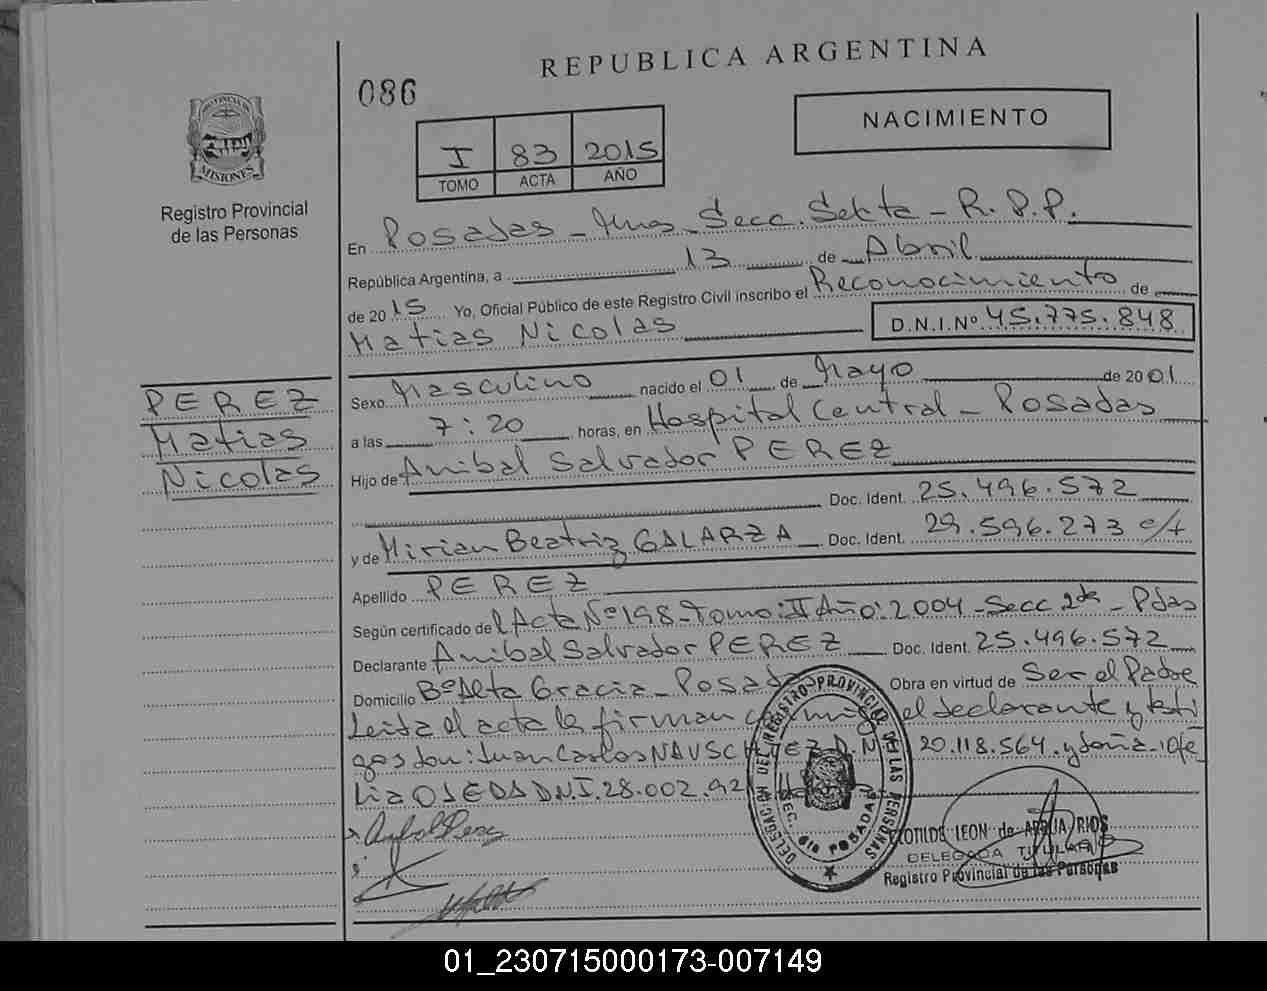 REPUBLICA ARGENTINA
086
NACIMIENTO
I 83 2015
TOMO ACTA AÑO
PROVINCIA DE
MISIONES
Registro Provincial
de las Personas
En Posadas - Mnes - Secc. Sexta - R. P. P.
República Argentina, a 13 de Abril
de 2015 Yo, Oficial Público de este Registro Civil inscribo el Reconocimiento de
Matias Nicolas D.N.I.Nº 45.775.848
PEREZ
Matias
Nicolas
Sexo Masculino nacido el 01 de Mayo de 2001
a las 7:20 horas, en Hospital Central - Posadas
Hijo de Anibal Salvador PEREZ
Doc. Ident. 25.496.572
y de Mirian Beatriz GALARZA Doc. Ident. 29.596.273
Apellido PEREZ
Según certificado del Acta Nº 198 - Tomo: II Año: 2004 - Secc 2da - Pdas
Declarante Anibal Salvador PEREZ Doc. Ident. 25.496.572
Domicilio Bº Alta Gracia - Posadas Obra en virtud de Ser el Padre
Leida el acta la firman el declarante y testi
gos don: Juan Carlos 20.118.564 y doña
OJEDA DNI. 28.002.92
DELEGACION DEL REGISTRO PROVINCIAL DE LAS PERSONAS
SEC. 6ta POSADAS
CLOTILDE LEON de RIOS
DELEGADA TITULAR
Registro Provincial de las Personas
01_230715000173-007149